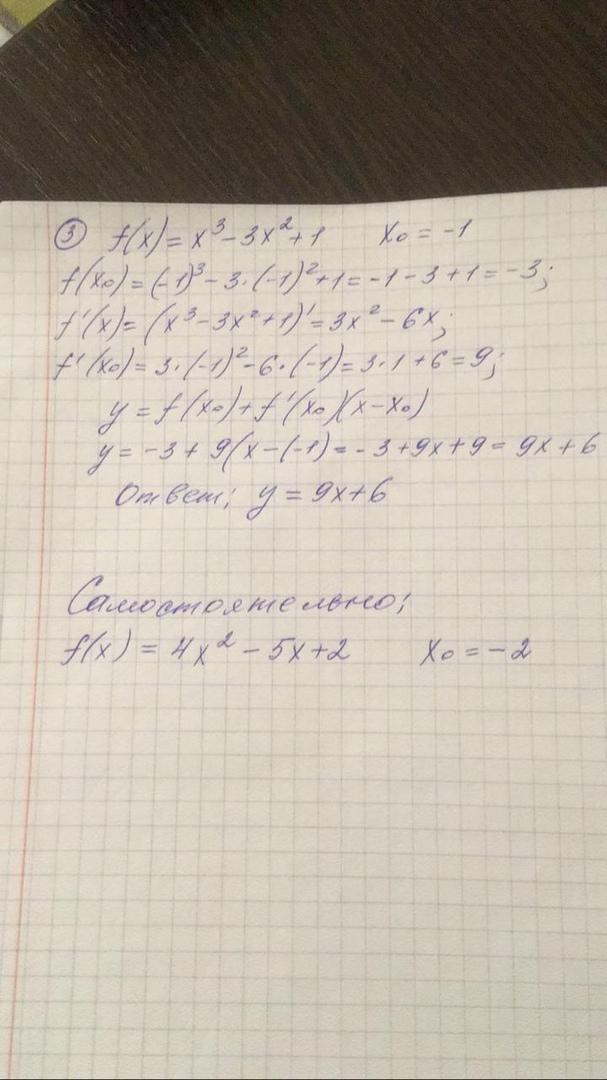 ③ f(x) = x³ - 3x² + 1 x₀ = -1
f(x₀) = (-1)³ - 3·(-1)² + 1 = -1 - 3 + 1 = -3;
f'(x) = (x³ - 3x² + 1)' = 3x² - 6x;
f'(x₀) = 3·(-1)² - 6·(-1) = 3·1 + 6 = 9;
y = f(x₀) + f'(x₀)(x - x₀)
y = -3 + 9(x - (-1) = -3 + 9x + 9 = 9x + 6
Ответ: y = 9x + 6
Самостоятельно:
f(x) = 4x² - 5x + 2 x₀ = -2